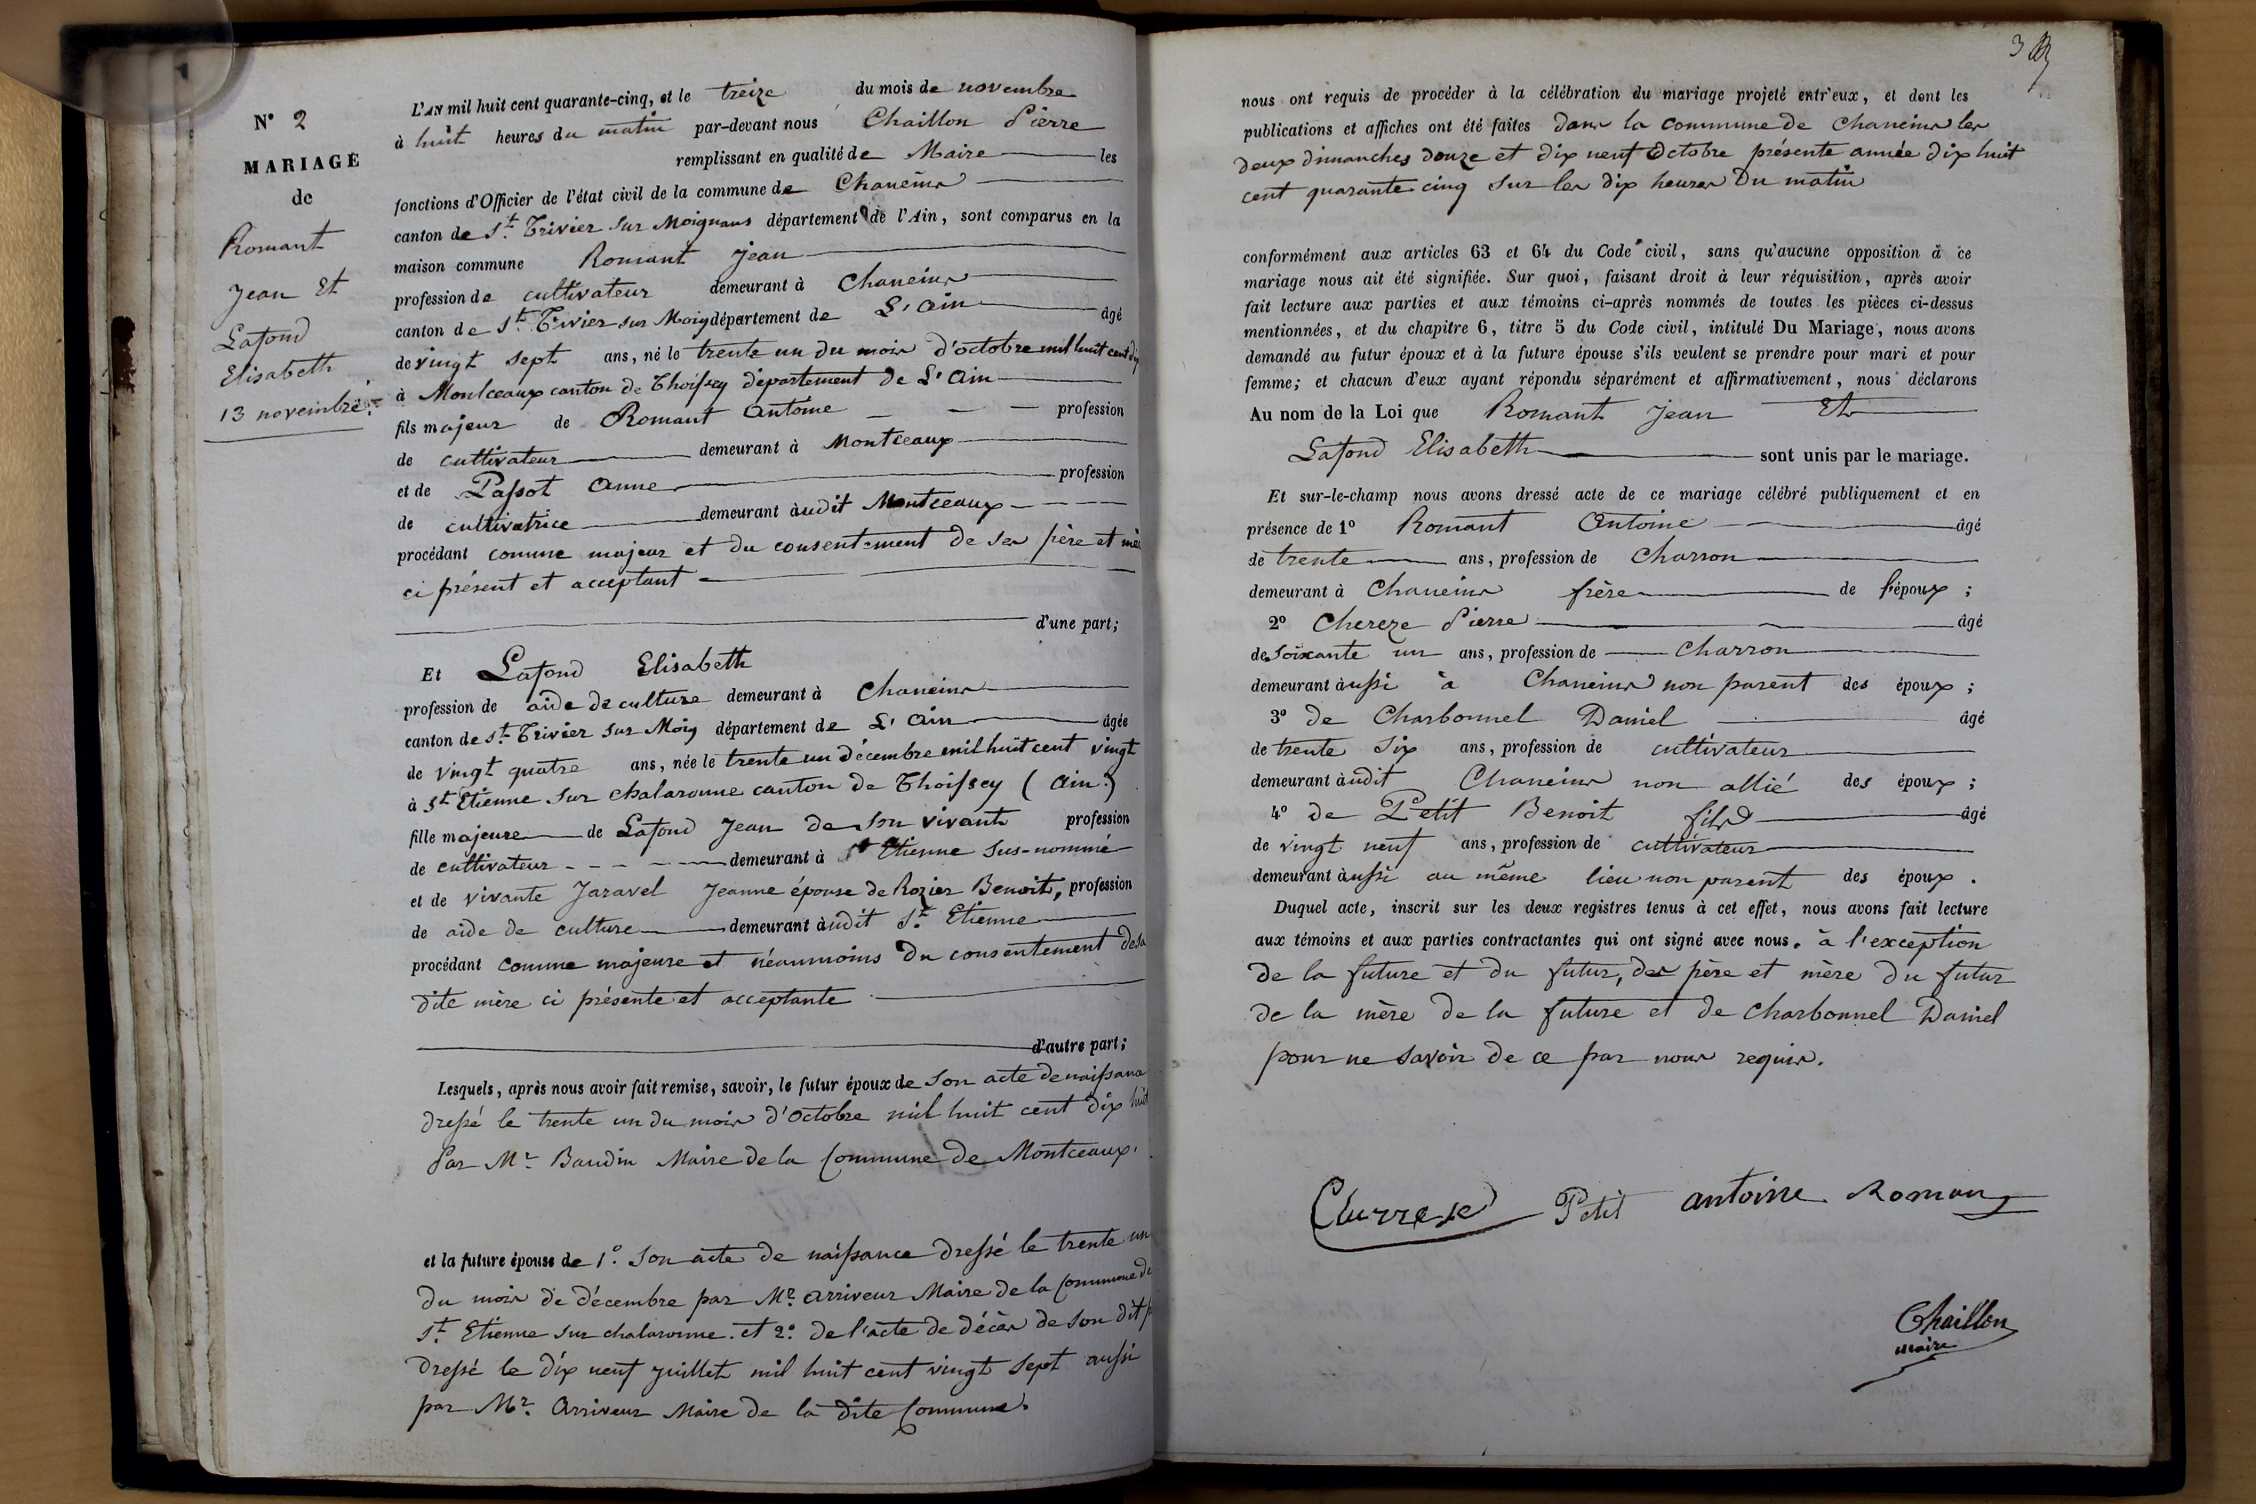 N° 2
MARIAGE
de
Romant
Jean Et
Lafond
Elisabeth
13 novembre.
L'AN mil huit cent quarante-cinq, et le treize du mois de novembre
à huit heures du matin par-devant nous Chaillon Pierre
remplissant en qualité de Maire les
fonctions d'Officier de l'état civil de la commune de Chaneins
canton de St. Trivier sur Moignans département de l'Ain, sont comparus en la
maison commune Romant Jean
profession de cultivateur demeurant à Chaneins
canton de St. Trivier sur Moig département de L'Ain âgé
de vingt sept ans, né le trente un du mois d'octobre mil huit cent dix
à Montceaux canton de Thoissey département de L'Ain
fils majeur de Romant Antoine profession
de cultivateur demeurant à Montceaux
et de Passot Anne profession
de cultivatrice demeurant àudit Montceaux
procédant comme majeur et du consentement de ses père et mère
ci présent et acceptant
d'une part;
Et Lafond Elisabeth
profession de aide de culture demeurant à Chaneins
canton de St. Trivier sur Moig département de L'Ain âgée
de vingt quatre ans, née le trente un décembre mil huit cent vingt
à St. Etienne sur chalaronne canton de Thoissey (Ain.)
fille majeure de Lafond Jean de son vivant profession
de cultivateur demeurant à St Etienne sus-nommé
et de vivante Jaravel Jeanne épouse de Rozier Benoit, profession
de aide de culture demeurant àudit St. Etienne
procédant comme majeure et néanmoins du consentement de sa
dite mère ci présente et acceptante
d'autre part;
Lesquels, après nous avoir fait remise, savoir, le futur époux de son acte de naissance
dressé le trente un du mois d'Octobre mil huit cent dix huit
Par Mr. Baudin Maire de la Commune de Montceaux.
et la future épouse de 1°. Son acte de naissance dressé le trente un
du mois de décembre par Mr. Arriveur Maire de la Commune de
St. Etienne sur chalaronne. et 2°. de l'acte de décès de son dit
dressé le dix neuf juillet mil huit cent vingt sept aussi
par Mr. Arriveur Maire de la dite Commune.
3
nous ont requis de procéder à la célébration du mariage projeté entr'eux, et dont les
publications et affiches ont été faites dans la commune de Chaneins les
deux dimanches douze et dix neuf Octobre présente année dix huit
cent quarante cinq sur les dix heures Du matin
conformément aux articles 63 et 64 du Code civil, sans qu'aucune opposition à ce
mariage nous ait été signifiée. Sur quoi, faisant droit à leur réquisition, après avoir
fait lecture aux parties et aux témoins ci-après nommés de toutes les pièces ci-dessus
mentionnées, et du chapitre 6, titre 5 du Code civil, intitulé Du Mariage, nous avons
demandé au futur époux et à la future épouse s'ils veulent se prendre pour mari et pour
femme; et chacun d'eux ayant répondu séparément et affirmativement, nous déclarons
Au nom de la Loi que Romant Jean Et
Lafond Elisabeth sont unis par le mariage.
Et sur-le-champ nous avons dressé acte de ce mariage célébré publiquement et en
présence de 1° Romant Antoine âgé
de trente ans, profession de Charron
demeurant à Chaneins frère de l'époux ;
2° Chereze Pierre âgé
de Soixante un ans, profession de Charron
demeurant àussi à Chaneins non parent des époux ;
3° de Charbonnel Daniel âgé
de trente six ans, profession de cultivateur
demeurant àudit Chaneins non allié des époux ;
4° de Petit Benoit fils âgé
de vingt neuf ans, profession de cultivateur
demeurant àussi au même lieu non parent des époux .
Duquel acte, inscrit sur les deux registres tenus à cet effet, nous avons fait lecture
aux témoins et aux parties contractantes qui ont signé avec nous. à l'exception
de la future et du futur, des père et mère du futur
de la mère de la future et de Charbonnel Daniel
pour ne savoir de ce par nous requis.
Petit antoine Roman
Chaillon
maire